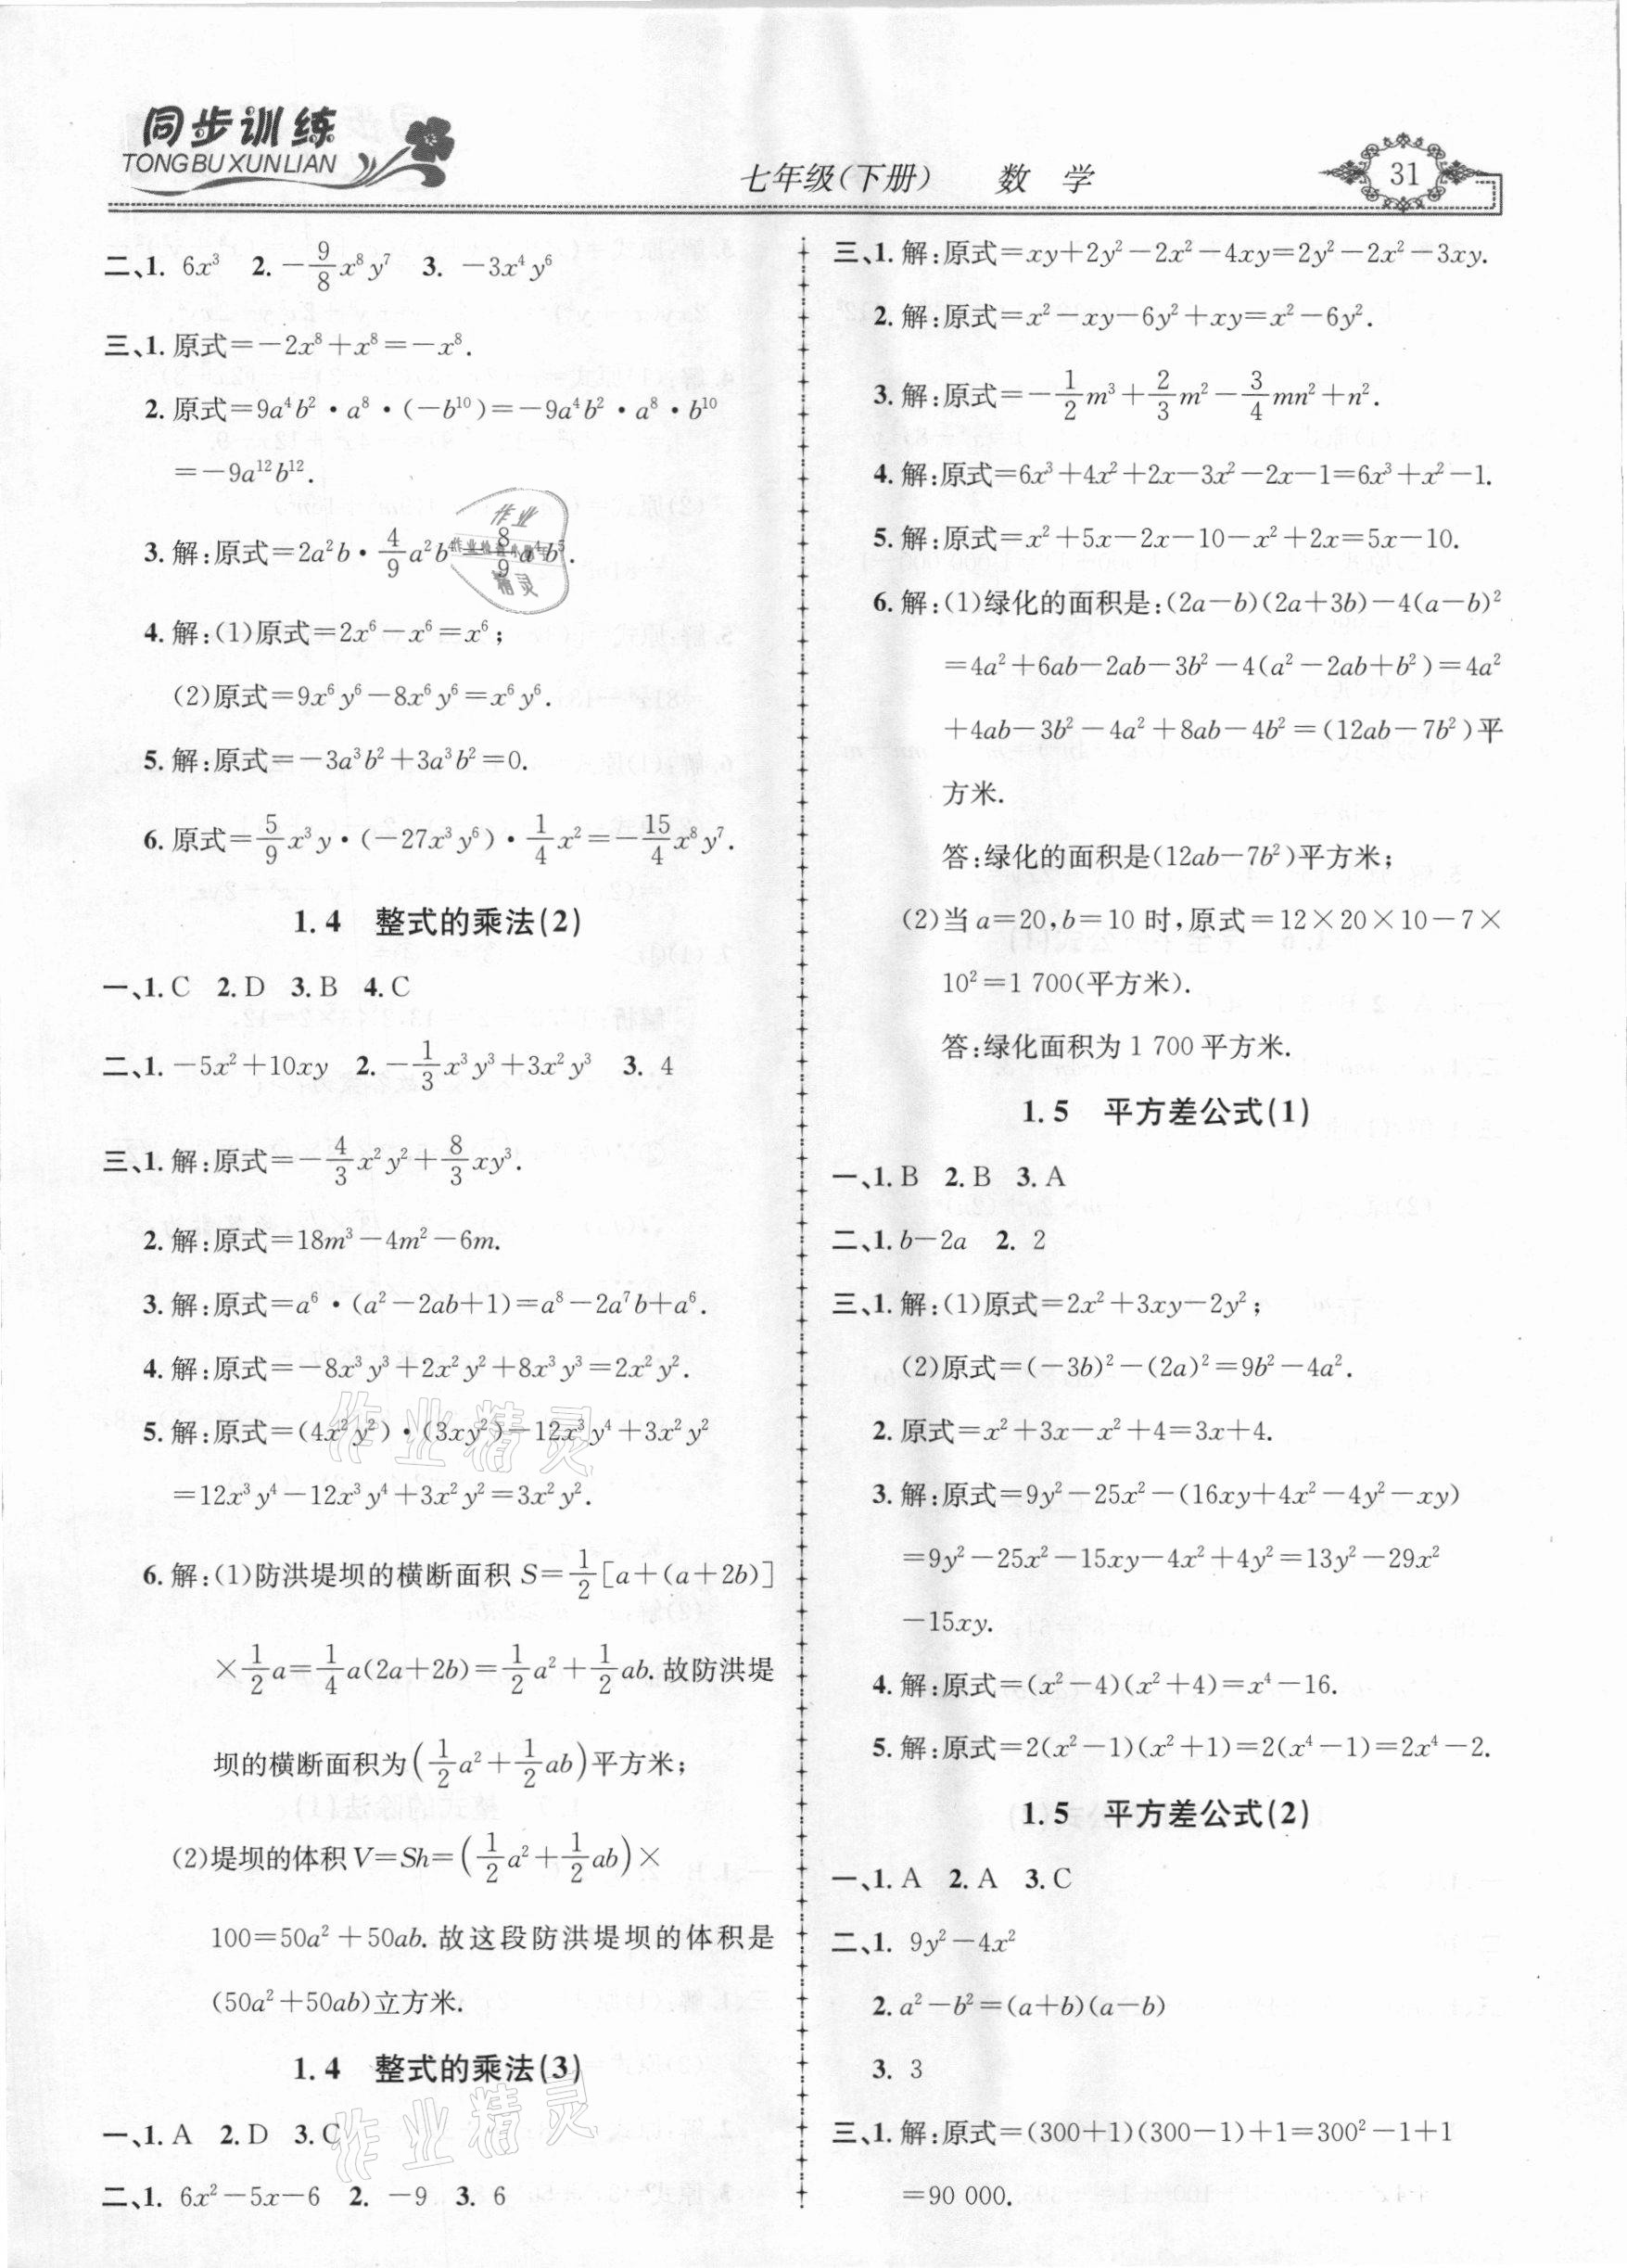 同步训练
TONGBUXUNLIAN
七年级(下册) 数 学
31
二、1. 6x³ 2. −9/8x⁸y⁷ 3. −3x⁴y⁶
三、1. 原式=−2x⁸+x⁸=−x⁸.
2. 原式=9a⁴b²·a⁸·(−b¹⁰)=−9a⁴b²·a⁸·b¹⁰
=−9a¹²b¹².
3. 解:原式=2a²b·4/9a²b⁴=8/9a⁴b⁵.
4. 解:(1)原式=2x⁶−x⁶=x⁶;
(2)原式=9x⁶y⁶−8x⁶y⁶=x⁶y⁶.
5. 解:原式=−3a³b²+3a³b²=0.
6. 原式=5/9x³y·(−27x³y⁶)·1/4x²=−15/4x⁸y⁷.
1.4 整式的乘法(2)
一、1. C 2. D 3. B 4. C
二、1. −5x²+10xy 2. −1/3x³y³+3x²y³ 3. 4
三、1. 解:原式=−4/3x²y²+8/3xy³.
2. 解:原式=18m³−4m²−6m.
3. 解:原式=a⁶·(a²−2ab+1)=a⁸−2a⁷b+a⁶.
4. 解:原式=−8x³y³+2x²y²+8x³y³=2x²y².
5. 解:原式=(4x²y²)·(3xy²)−12x³y⁴+3x²y²
=12x³y⁴−12x³y⁴+3x²y²=3x²y².
6. 解:(1)防洪堤坝的横断面积 S=1/2[a+(a+2b)]
×1/2a=1/4a(2a+2b)=1/2a²+1/2ab. 故防洪堤
坝的横断面积为(1/2a²+1/2ab)平方米;
(2)堤坝的体积 V=Sh=(1/2a²+1/2ab)×
100=50a²+50ab. 故这段防洪堤坝的体积是
(50a²+50ab)立方米.
1.4 整式的乘法(3)
一、1. A 2. D 3. C
二、1. 6x²−5x−6 2. −9 3. 6
三、1. 解:原式=xy+2y²−2x²−4xy=2y²−2x²−3xy.
2. 解:原式=x²−xy−6y²+xy=x²−6y².
3. 解:原式=−1/2m³+2/3m²−3/4mn²+n².
4. 解:原式=6x³+4x²+2x−3x²−2x−1=6x³+x²−1.
5. 解:原式=x²+5x−2x−10−x²+2x=5x−10.
6. 解:(1)绿化的面积是:(2a−b)(2a+3b)−4(a−b)²
=4a²+6ab−2ab−3b²−4(a²−2ab+b²)=4a²
+4ab−3b²−4a²+8ab−4b²=(12ab−7b²)平
方米.
答:绿化的面积是(12ab−7b²)平方米;
(2)当 a=20,b=10 时,原式=12×20×10−7×
10²=1 700(平方米).
答:绿化面积为 1 700 平方米.
1.5 平方差公式(1)
一、1. B 2. B 3. A
二、1. b−2a 2. 2
三、1. 解:(1)原式=2x²+3xy−2y²;
(2)原式=(−3b)²−(2a)²=9b²−4a².
2. 原式=x²+3x−x²+4=3x+4.
3. 解:原式=9y²−25x²−(16xy+4x²−4y²−xy)
=9y²−25x²−15xy−4x²+4y²=13y²−29x²
−15xy.
4. 解:原式=(x²−4)(x²+4)=x⁴−16.
5. 解:原式=2(x²−1)(x²+1)=2(x⁴−1)=2x⁴−2.
1.5 平方差公式(2)
一、1. A 2. A 3. C
二、1. 9y²−4x²
2. a²−b²=(a+b)(a−b)
3. 3
三、1. 解:原式=(300+1)(300−1)+1=300²−1+1
=90 000.
作业精灵
作业精灵
作业
精灵